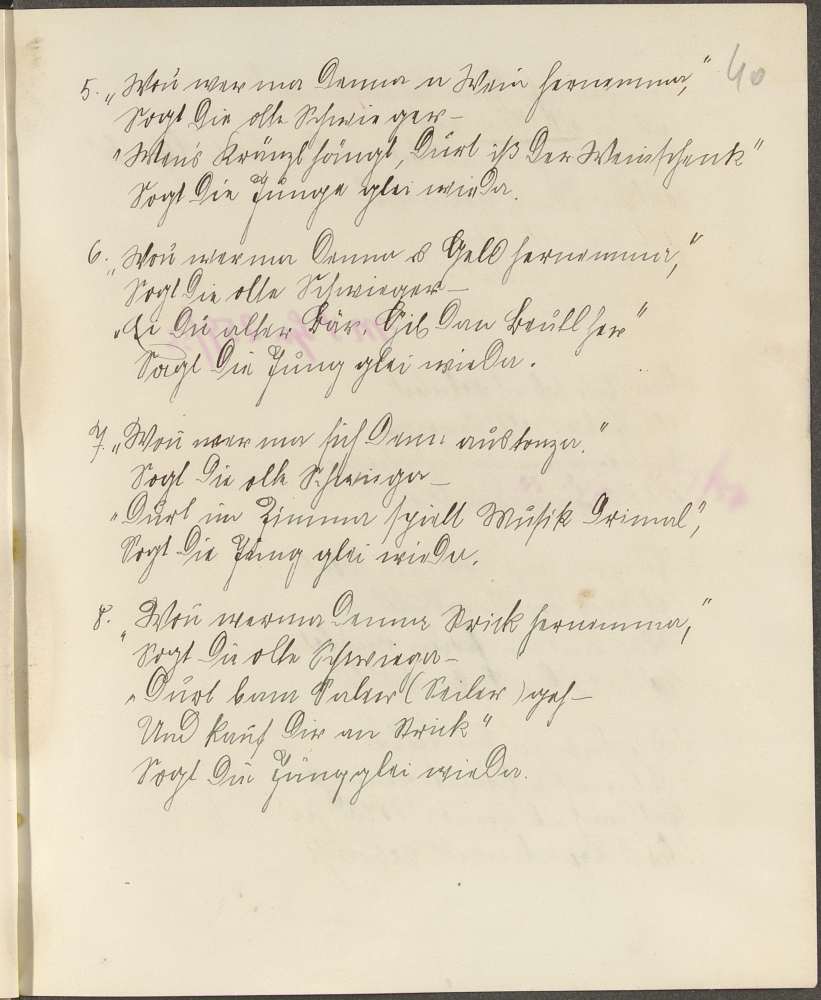 40
5. „Wou wer ma denna n Wein hernemma,"
Sogt die olte Schwieger—
„Wou's Kränzl hängt, durt iß der Weinschenk"
Sogt die Junge glei wieda.
6. „Wou wer ma denna s Geld hernemma,"
Sogt die olte Schwieger—
„Ei du alter Bär, Gib dan Beutl her"
Sagt die Jung glei wieda.
7. „Wou wer ma sich denn austonza."
Sogt die olte Schwiega—
„Durt im Zimma spielt Musik drimal",
Sogt die Jung glei wieda.
8. „Wou werma denna Strick hernemma,"
Sogt die olte Schwiega—
„Durt bam Saler (Seiler) geh—
Und kauf dir an Strick"
Sogt die Jung glei wieda.